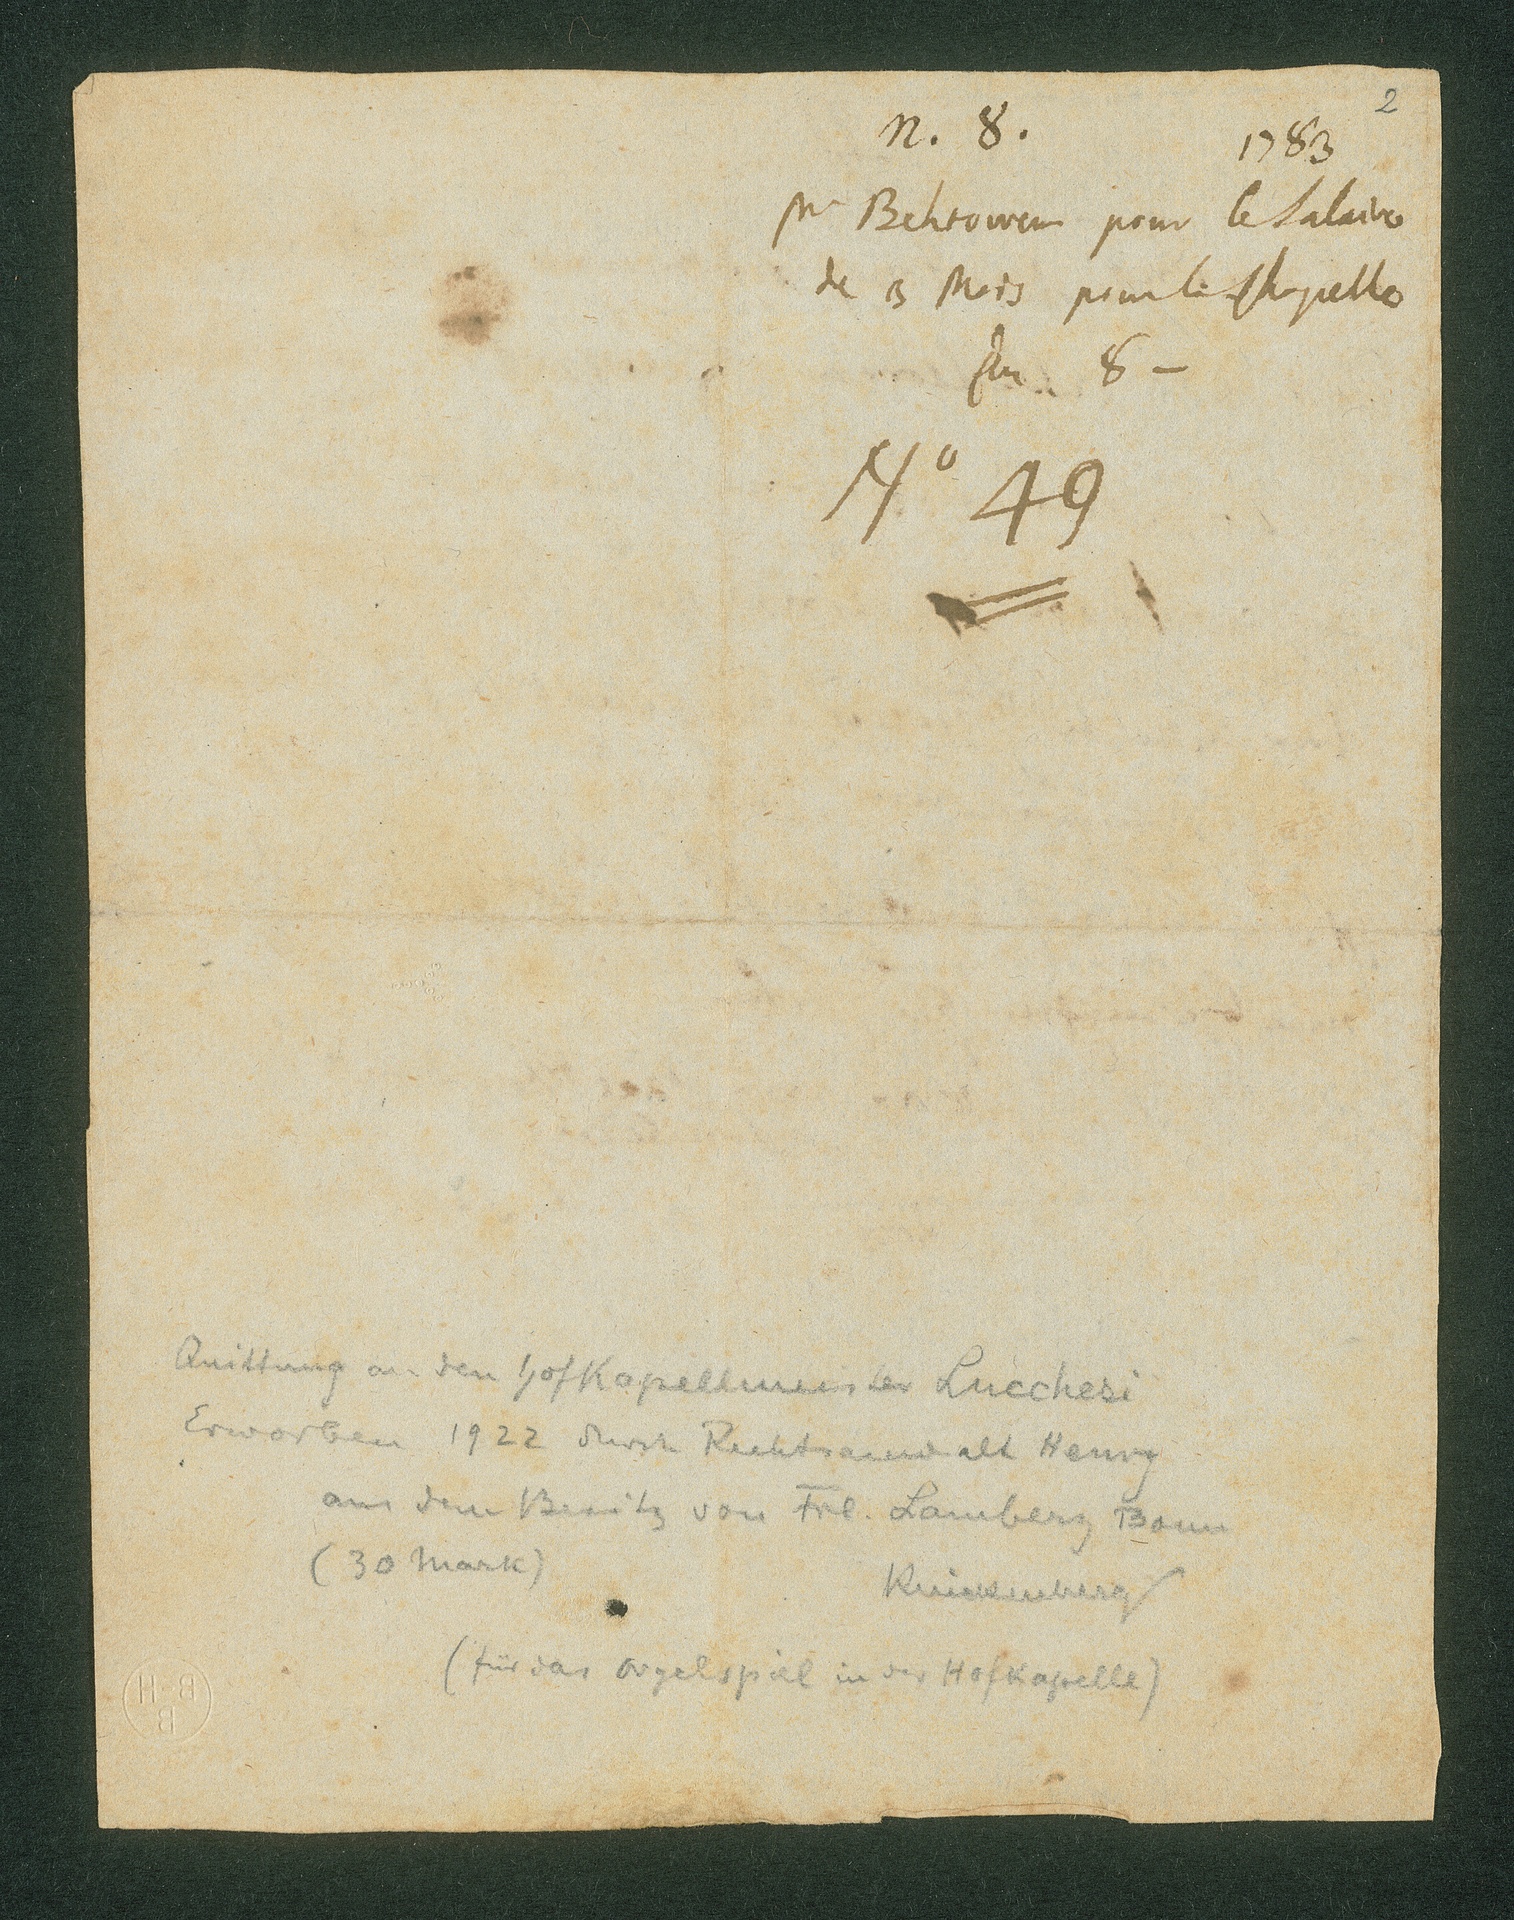 2
n. 8. 1783
Mr Behtowen pour le Salaire
de 3 Mois pour la Chapelle
8 –
No 49
Quittung an den Hofkapellmeister Lucchesi
Erworben 1922 durch Rechtsanwalt Henry
aus dem Besitz von Frl. Lamberz Bonn
(30 Mark) Knickenberg
(für das Orgelspiel in der Hofkapelle)
B-H
B